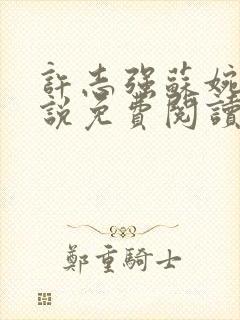 許志强蘇婉
說免費閱讀
鄭重騎士